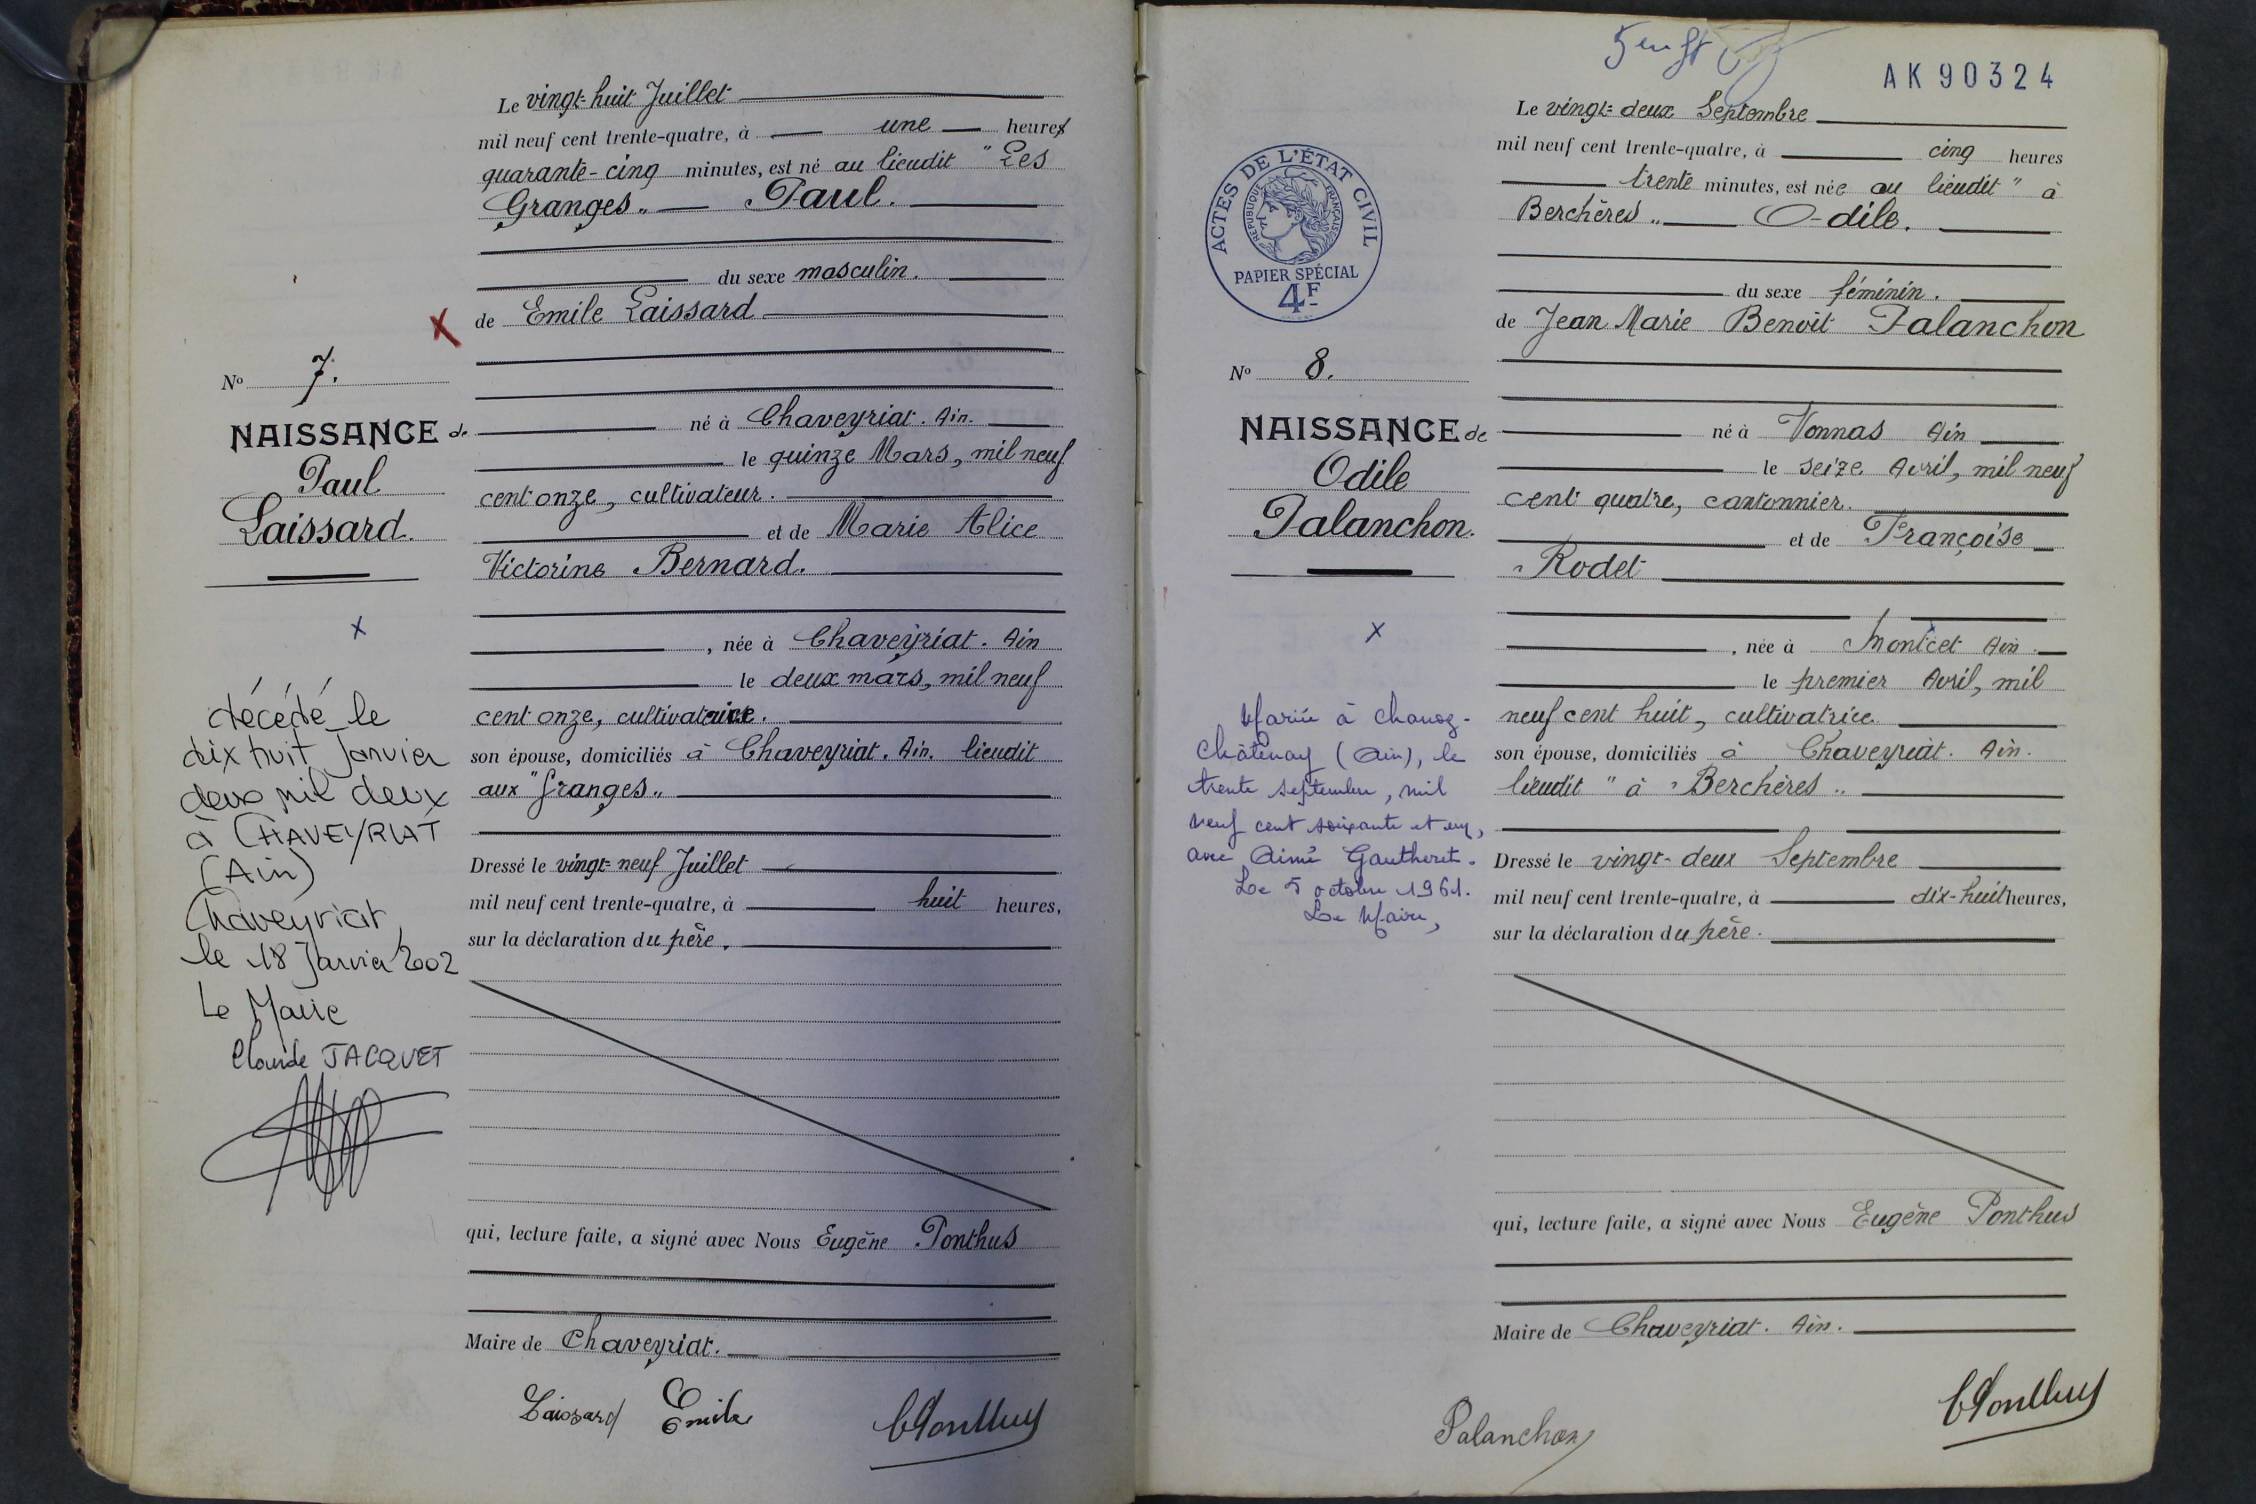 Le vingt-huit Juillet
mil neuf cent trente-quatre, à une heure
quarante-cinq minutes, est né au lieudit "Les
Granges" Paul.
du sexe masculin.
de Emile Laissard
N° 7.
NAISSANCE de
Paul
Laissard.
né à Chaveyriat. Ain.
le quinze Mars, mil neuf
cent onze, cultivateur.
et de Marie Alice
Victorine Bernard.
, née à Chaveyriat. Ain
le deux mars, mil neuf
cent onze, cultivatrice.
son épouse, domiciliés à Chaveyriat. Ain. lieudit
aux "Granges"
Dressé le vingt-neuf Juillet
mil neuf cent trente-quatre, à huit heures,
sur la déclaration du père.
x
décédé le
dix huit Janvier
deux mil deux
à CHAVEYRIAT
(Ain)
Chaveyriat,
le 18 Janvier 2002
Le Maire
Claude JACQUET
qui, lecture faite, a signé avec Nous Eugène Ponthus
Maire de Chaveyriat.
Laissard Emile
EPonthus
AK90324
Le vingt-deux Septembre
mil neuf cent trente-quatre, à cinq heures
trente minutes, est née au lieudit " à
Berchères" Odile.
du sexe féminin.
de Jean Marie Benoît Palanchon
ACTES DE L'ÉTAT CIVIL
RÉPUBLIQUE FRANÇAISE
PAPIER SPÉCIAL
4F
N° 8.
NAISSANCE de
Odile
Palanchon.
né à Vonnas Ain
le seize Avril, mil neuf
cent quatre, cantonnier.
et de Françoise
Rodet
, née à Montcet Ain.
le premier Avril, mil
neuf cent huit, cultivatrice.
son épouse, domiciliés à Chaveyriat. Ain.
lieudit " à Berchères"
Dressé le vingt-deux Septembre
mil neuf cent trente-quatre, à dix-huit heures,
sur la déclaration du père.
x
Mariée à Chanoz-
Châtenay (Ain), le
trente septembre, mil
neuf cent soixante et un,
avec Aimé Gautheret.
Le 5 octobre 1961.
Le Maire,
qui, lecture faite, a signé avec Nous Eugène Ponthus
Maire de Chaveyriat. Ain.
Palanchon
EPonthus